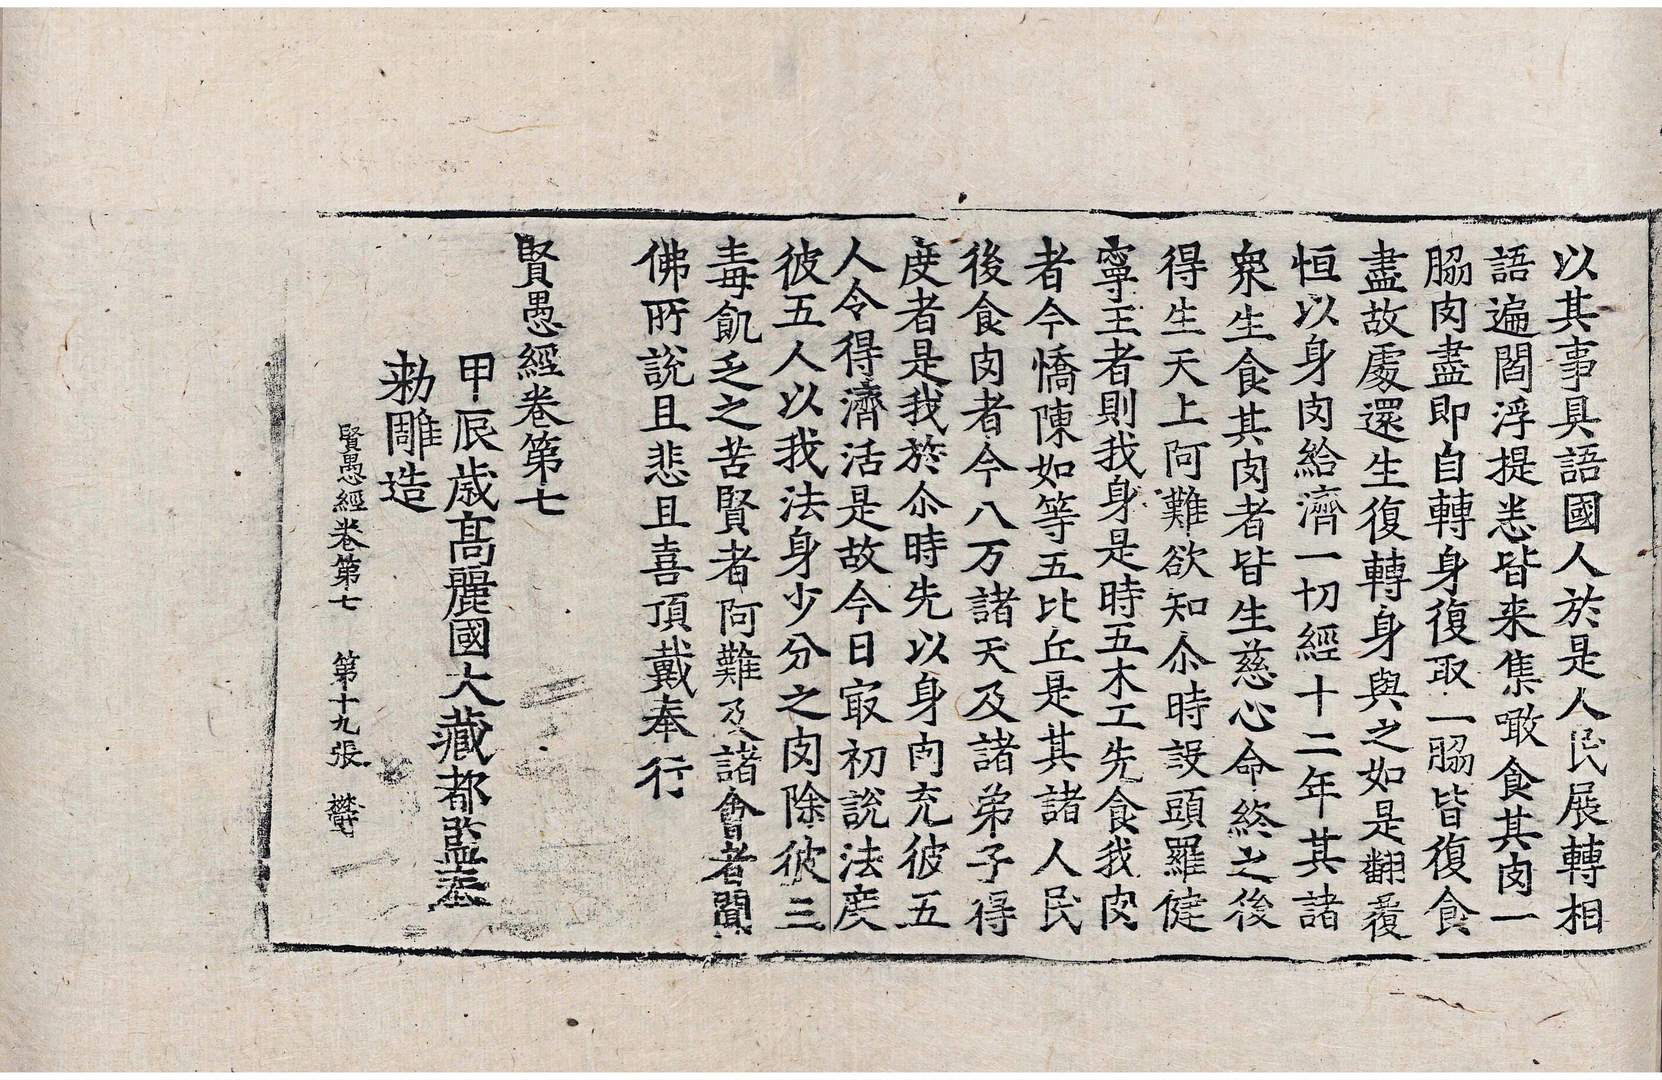 以其事具語國人於是人民展轉相
語遍閻浮提悉皆来集噉食其肉一
脇肉盡即自轉身復取一脇皆復食
盡故處還生復轉身與之如是翻覆
恒以身肉給濟一切經十二年其諸
衆生食其肉者皆生慈心命終之後
得生天上阿難欲知尒時設頭羅健
寧王者則我身是時五木工先食我肉
者今憍陳如等五比丘是其諸人民
後食肉者今八万諸天及諸弟子得
度者是我於尒時先以身肉充彼五
人令得濟活是故今日㝡初說法度
彼五人以我法身少分之肉除彼三
毒飢乏之苦賢者阿難及諸會者聞
佛所說且悲且喜頂戴奉行
賢愚經卷第七
甲辰歳髙麗國大藏都監奉
勑雕造
賢愚經卷第七 第十九張